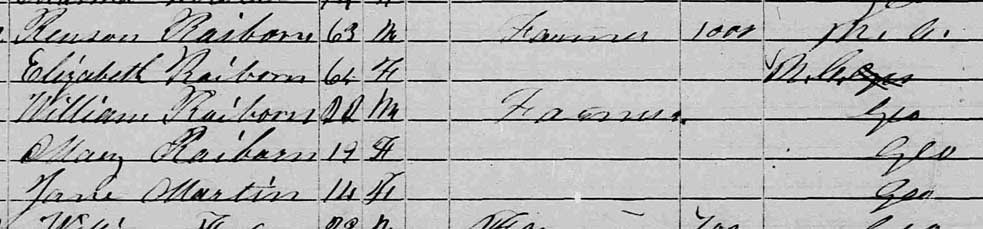 Renson Raiborn 63 M Farmer 1000 N. C.
Elizabeth Raiborn 64 F N. C. Geo
William Raiborn 22 M Farmer Geo
Mary Raiborn 19 F Geo
Jane Martin 14 F Geo